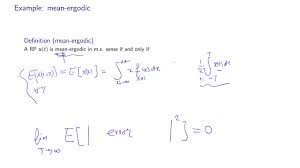 Example: mean-ergodic
Definition (mean-ergodic)
A RP x(t) is mean-ergodic in m.s. sense if and only if
E[x(t)] = E[x] = ∫_{-∞}^{∞} x f(x) dx
1/2T ∫_{-T}^{T} x(t) dt
∀T
lim_{T→∞} E[| error |²] = 0